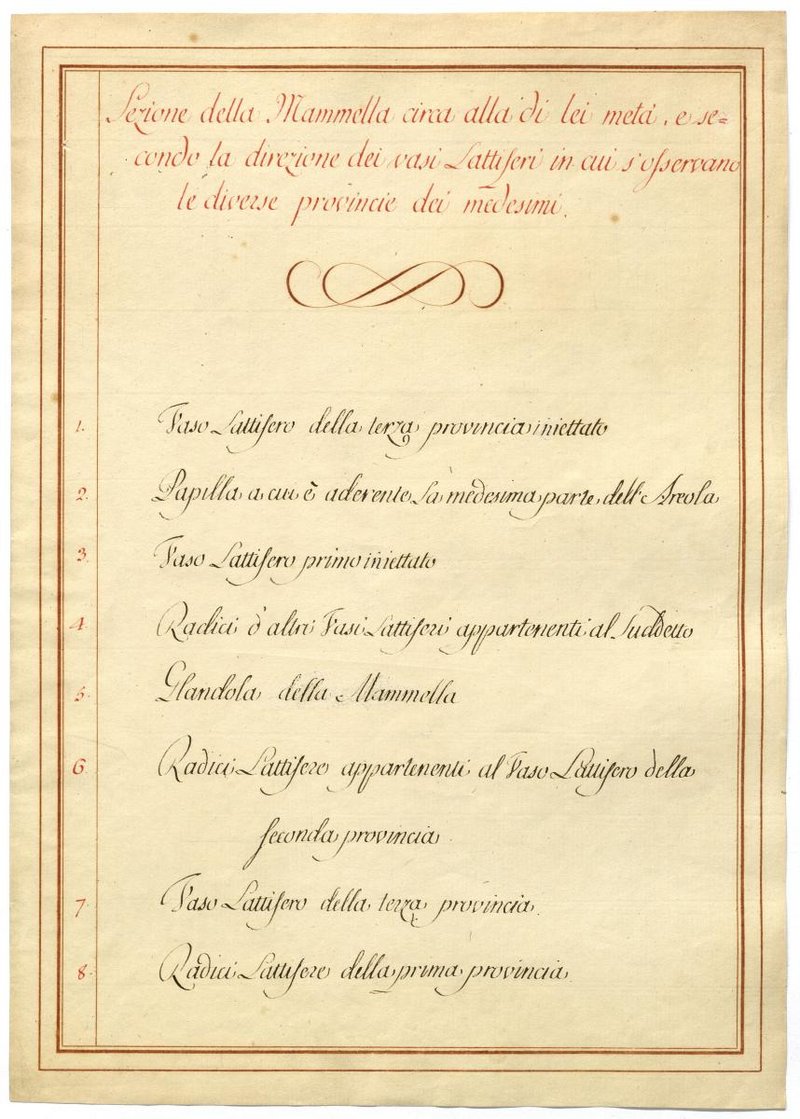 Sezione della Mammella circa alla di lei metà, e se=
condo la direzione dei vasi Lattiferi in cui s'osservano
le diverse provincie dei medesimi.
1. Vaso Lattifero della terza provincia iniettato
2. Papilla a cui è aderente la medesima parte dell'Areola
3. Vaso Lattifero primo iniettato
4. Radici d'altri Vasi Lattiferi appartenenti al Suddetto
5. Glandola della Mammella
6. Radici Lattifere appartenenti al Vaso Lattifero della
seconda provincia
7. Vaso Lattifero della terza provincia.
8. Radici Lattifere della prima provincia.